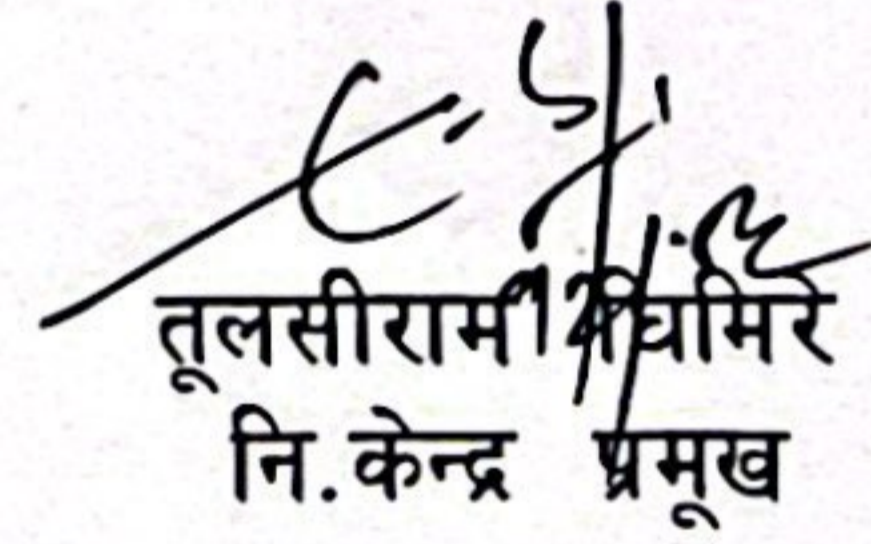 तूलसीराम घिमिरे
नि.केन्द्र प्रमूख